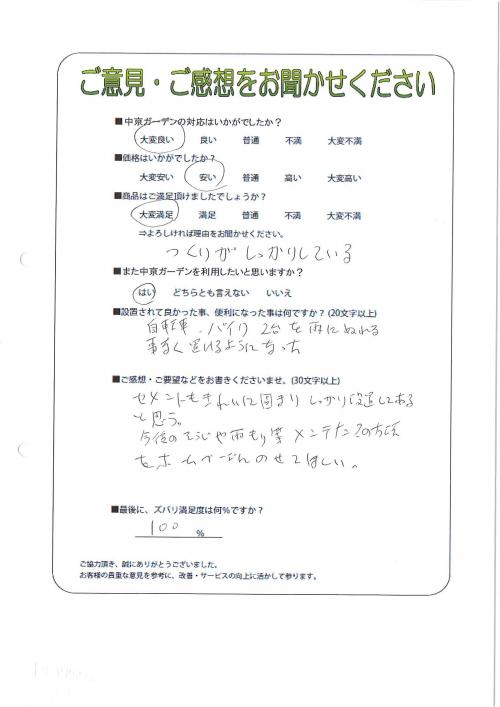 ご意見・ご感想をお聞かせください
■中京ガーデンの対応はいかがでしたか？
大変良い 良い 普通 不満 大変不満
■価格はいかがでしたか？
大変安い 安い 普通 高い 大変高い
■商品はご満足頂けましたでしょうか？
大変満足 満足 普通 不満 大変不満
⇒よろしければ理由をお聞かせください。
つくりがしっかりしている
■また中京ガーデンを利用したいと思いますか？
はい どちらとも言えない いいえ
■設置されて良かった事、便利になった事は何ですか？(20文字以上)
自転車、バイク 2台を雨にぬれる
事なく置けるようになった
■ご感想・ご要望などをお書きくださいませ。(30文字以上)
セメントもきれいに固まり しっかり設置してある
と思う。
今後のそうじや雨もり等 メンテナンスの方法
をホームページにのせてほしい。
■最後に、ズバリ満足度は何%ですか？
100 %
ご協力頂き、誠にありがとうございました。
お客様の貴重な意見を参考に、改善・サービスの向上に活かして参ります。